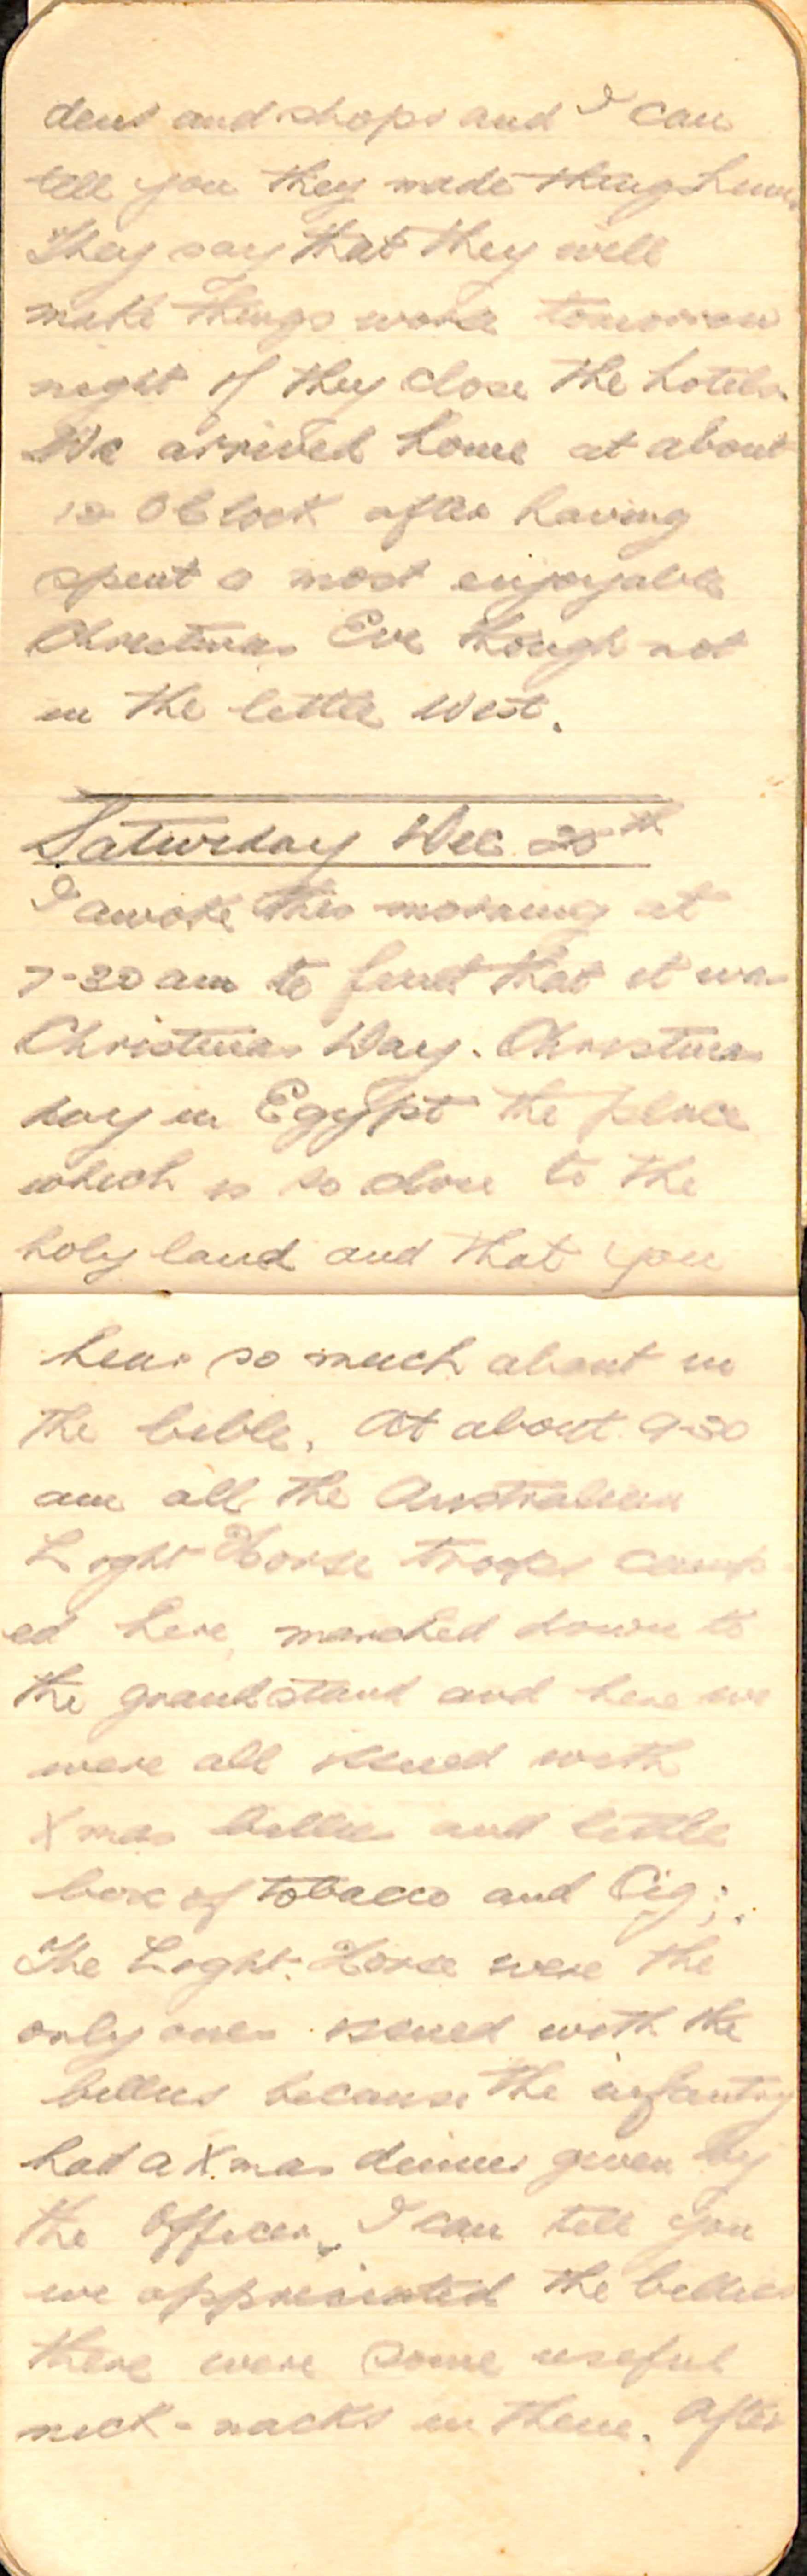 dens and shops and I can
tell you they made things hum.
They say that they will
make things worse tomorrow
night if they close the hotels.
We arrived home at about
12 OClock after having
spent a most enjoyable
Christmas Eve though not
in the little West.
Saturday Dec 25th
I awoke this morning at
7-30 am to find that it was
Christmas Day. Christmas
day in Egypt the place
which is so close to the
holy land and that you
hear so much about in
the bible. At about 9-30
am all the Australian
Light Horse troops camp-
ed here, marched down to
the grandstand and here we
were all issued with
Xmas billies and little
box of tobacco and Cig;.
The Light Horse were the
only ones issued with the
billies because the infantry
had a Xmas dinner given by
the Officers. I can tell you
we appreciated the billies
there were some useful
nick-nacks in them. After